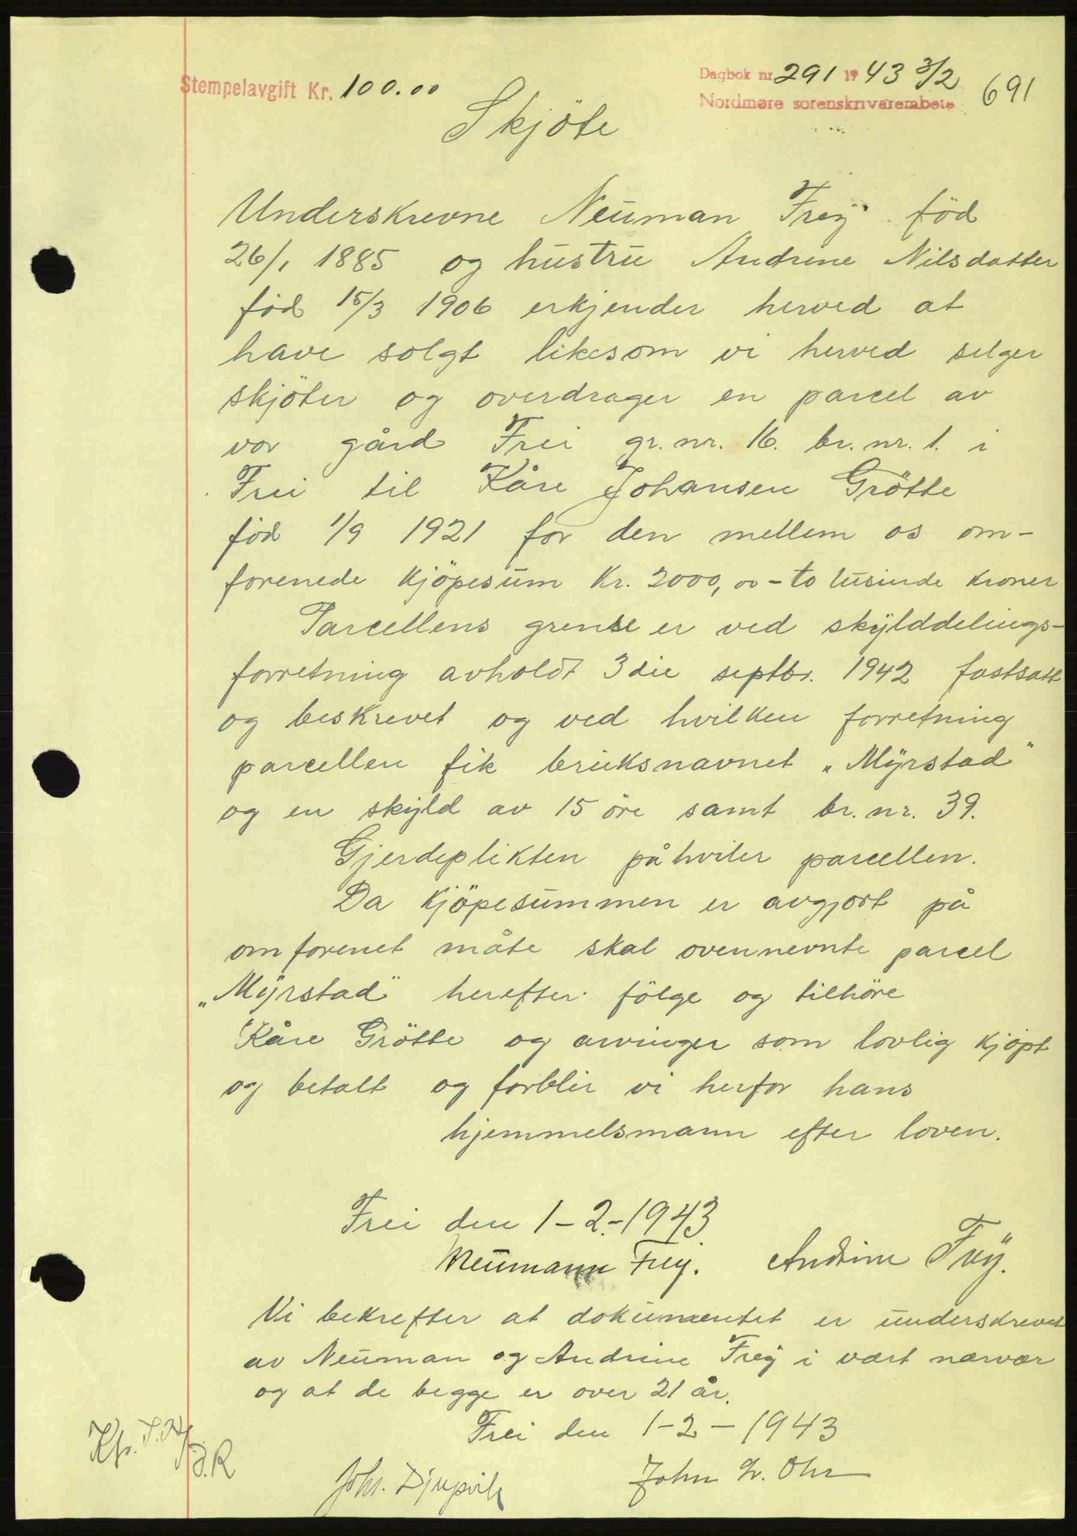 Stempelavgift Kr. 100.00
Dagbok nr. 291 1943 3/2
691
Nordmøre sorenskriverembete
Skjöte
Underskrevne Neuman Frey föd
26/1 1885 og hustru Andrine Nilsdatter
föd 15/3 1906 erkjender herved at
have solgt likesom vi herved selger
skjöter og overdrager en parcel av
vor gård Frei gr. nr. 16. br. nr. 1. i
Frei til Kåre Johansen Grötte
föd 1/9 1921 for den mellem os om-
forenede kjöpesum Kr. 2000,00 - to tusinde kroner
Parcellens grense er ved skylddelings-
forretning avholdt 3die septbr. 1942 fastsatt
og beskrevet og ved hvilken forretning
parcellen fik bruksnavnet „Myrstad"
og en skyld av 15 öre samt br. nr. 39.
Gjerdeplikten påhviler parcellen.
Da kjöpesummen er avgjort på
omforenet måte skal ovennevnte parcel
„Myrstad" herefter fölge og tilhöre
Kåre Grötte og arvinger som lovlig kjöpt
og betalt og forblir vi herfor hans
hjemmelsmann efter loven.
Frei den 1-2-1943
Neumann Frey. Andrine Frey.
Vi bekrefter at dokumentet er underskrevet
av Neuman og Andrine Frey i vært nærvær
og at de begge er over 21 år.
Frei den 1-2-1943
Kfr.
Joh. Djupvik John L. Ohr